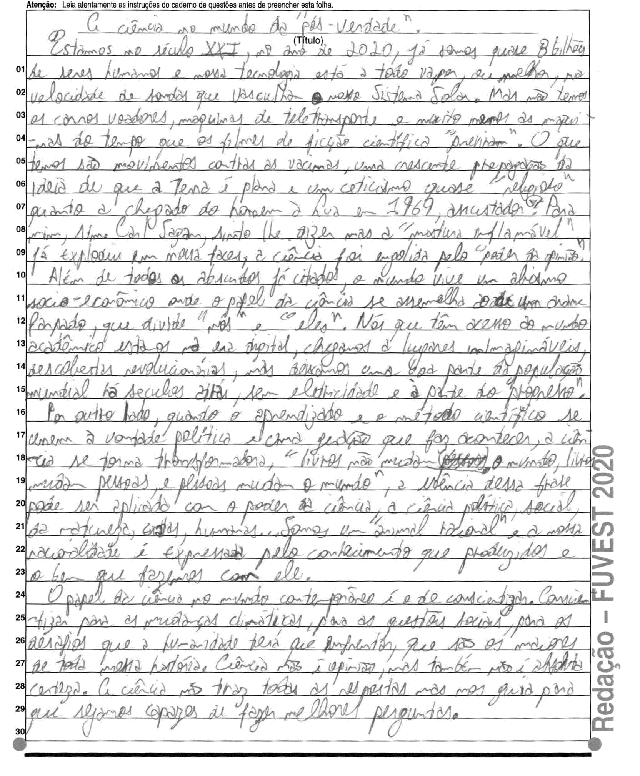 Atenção: Leia atentamente as instruções do caderno de questões antes de preencher esta folha.
A ciência no mundo da "pós-verdade".
(Título)
Estamos no século XXI, no ano de 2020, já somos quase 8 bilhões
01 de seres humanos e nossa tecnologia está a todo vapor, ou melhor, na
02 velocidade de sondas que vasculham o nosso Sistema Solar. Mas não temos
03 os carros voadores, maquinas de teletransporte e muito menos as maqui-
04 nas do tempo que os filmes de ficção científica "previram". O que
05 temos são movimentos contras as vacinas, uma crescente propagação da
06 ideia de que a Terra é plana e um ceticismo quase "religioso"
07 quanto a chegada do homem à Lua em 1969, assustador? Para
08 mim, sim. Carl Sagan, sinto lhe dizer mas a "mistura inflamável"
09 já explodiu em nossa faces, a ciência foi engolida pelo "poder da opinião".
10 Além de todos os absurtos já citados o mundo vive um abismo
11 socio-econômico onde o papel da ciência se assemelha ao de um arame
12 farpado, que divide "nós" e "eles". Nós que têm acesso ao mundo
13 acadêmico estamos na era digital, chegamos a lugares inimagináveis,
14 descobertas revolucionárias, mas deixamos uma boa parte da população
15 mundial há seculos atrás, sem eletricidade e à parte do "progresso".
16 Por outro lado, quando o aprendizado e o método científico se
17 unem à vontade política e uma gestão que faz acontecer, a ciên-
18 cia se torna transformadora, "livros não mudam o mundo, livros
19 mudam pessoas, e pessoas mudam o mundo", a essência dessa frase
20 pode ser aplicada com o poder da ciência, a ciência política, social,
21 da natureza, exatas, humanas... Somos um "animal racional" e a nossa
22 racionalidade é expressada pelo conhecimento que produzidos e
23 o bem que fazemos com ele.
24 O papel da ciência no mundo contemporâneo é o de conscientizar. Conscien-
25 tizar para as mudanças climáticas, para as questões sociais, para os
26 desafios que a humanidade terá que enfrentar, que são os maiores
27 de toda nossa história. Ciência não é opinião, mas também não é absoluta
28 certeza. A ciência não traz todas as respostas mas nos guia para
29 que sejamos capazes de fazer melhores perguntas.
30
Redação – FUVEST 2020